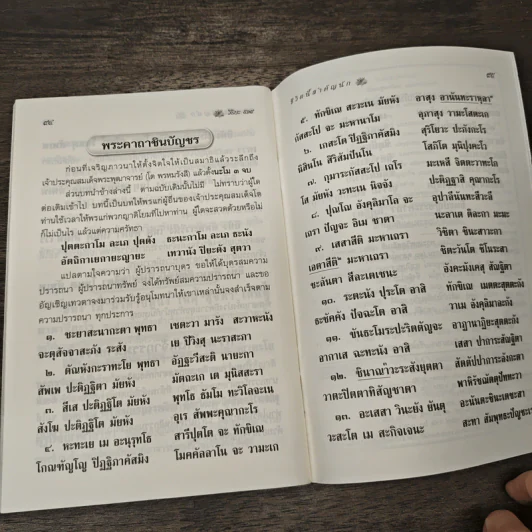 ๔๘
พระคาถาชินบัญชร
ก่อนที่เจริญภาวนาให้ตั้งจิตใจให้เป็นสมาธิแล้วระลึกถึง
เจ้าประคุณสมเด็จพระพุฒาจารย์ (โต พรหมรังสี) แล้วตั้งนะโม ๓ จบ
ส่วนบทนำข้างล่างนี้ ตามฉบับเดิมนั้นไม่มี ไม่ทราบว่าผู้ใด
ต่อเติมเข้าไป บทนี้เป็นบทให้พรแก่ผู้ยืนของเจ้าประคุณสมเด็จโต
ท่านใช้เวลาให้พรแก่พวกญาติโยมที่ไปหาท่าน ผู้ใดจะสวดด้วยหรือไม่
ก็ไม่เป็นไร แล้วแต่ความศรัทธา
ปุตตะกาโม ละเภ ปุตตัง ธะนะกาโม ละเภ ธะนัง
อัตถิกาเยกายะญายะ เทวานัง ปิยะตัง สุตวา
แปลตามใจความว่า ผู้ปรารถนาบุตร ขอให้ได้บุตรสมความ
ปรารถนา ผู้ปรารถนาทรัพย์ จงได้ทรัพย์สมความปรารถนา และขอ
อัญเชิญเทวดาจงมาร่วมรับรู้อนุโมทนาให้เขาเหล่านั้นจงสำเร็จตาม
ความปรารถนา ทุกประการ
๑. ชะยาสะนากะตา พุทธา เชตะวา มารัง สะวาหะนัง
จะตุสัจจาสะภัง ระสัง เย ปิวิงสุ นะราสะภา
๒. ตัณหังกะราทะโย พุทธา อัฏฐะวีสะติ นายะกา
สัพเพ ปะติฏฐิตา มัยหัง มัตถะเก เต มุนิสสะรา
๓. สีเส ปะติฏฐิโต มัยหัง พุทโธ ธัมโม ทะวิโลจะเน
สังโฆ ปะติฏฐิโต มัยหัง อุเร สัพพะคุณากะโร
๔. หะทะเย เม อะนุรุทโธ สารีปุตโต จะ ทักขิเณ
โกณฑัญโญ ปิฏฐิภาคัสมิง โมคคัลลาโน จะ วามะเก
ชีวิตนี้สำคัญนัก ๔๙
๕. ทักขิเณ สะวะเน มัยหัง อาสุง อานันทะราหุลา
กัสสะโป จะ มะหานาโม อุภาสุง วามะโสตะเก
๖. เกสะโต ปิฏฐิภาคัสมิง สุริโยวะ ปะภังกะโร
นิสินโน สิริสัมปันโน โสภิโต มุนิปุงคะโว
๗. กุมาระกัสสะโป เถโร มะเหสี จิตตะวาทะโก
โส มัยหัง วะทะเน นิจจัง ปะติฏฐาสิ คุณากะโร
๘. ปุณโณ อังคุลิมาโล จะ อุปาลีนันทะสีวะลี
เถรา ปัญจะ อิเม ชาตา นะลาเต ติละกา มะมะ
๙. เสสาสีติ มะหาเถรา วิชิตา ชินะสาวะกา
เอตาสีติ มะหาเถรา ชิตะวันโต ชิโนระสา
ชะลันตา สีละเตเชนะ อังคะมังเคสุ สัณฐิตา
๑๐. ระตะนัง ปุระโต อาสิ ทักขิเณ เมตตะสุตตะกัง
ธะชัคคัง ปัจฉะโต อาสิ วาเม อังคุลิมาละกัง
๑๑. ขันธะโมระปะริตตัญจะ อาฏานาฏิยะสุตตะกัง
อากาเส ฉะทะนัง อาสิ เสสา ปาการะสัณฐิตา
๑๒. ชินาณา
วาตะปิตตาทิสัญชาตา
๑๓. อะเสสา วินะยัง ยันตุ
วะสะโต เม สะกิจเจนะ